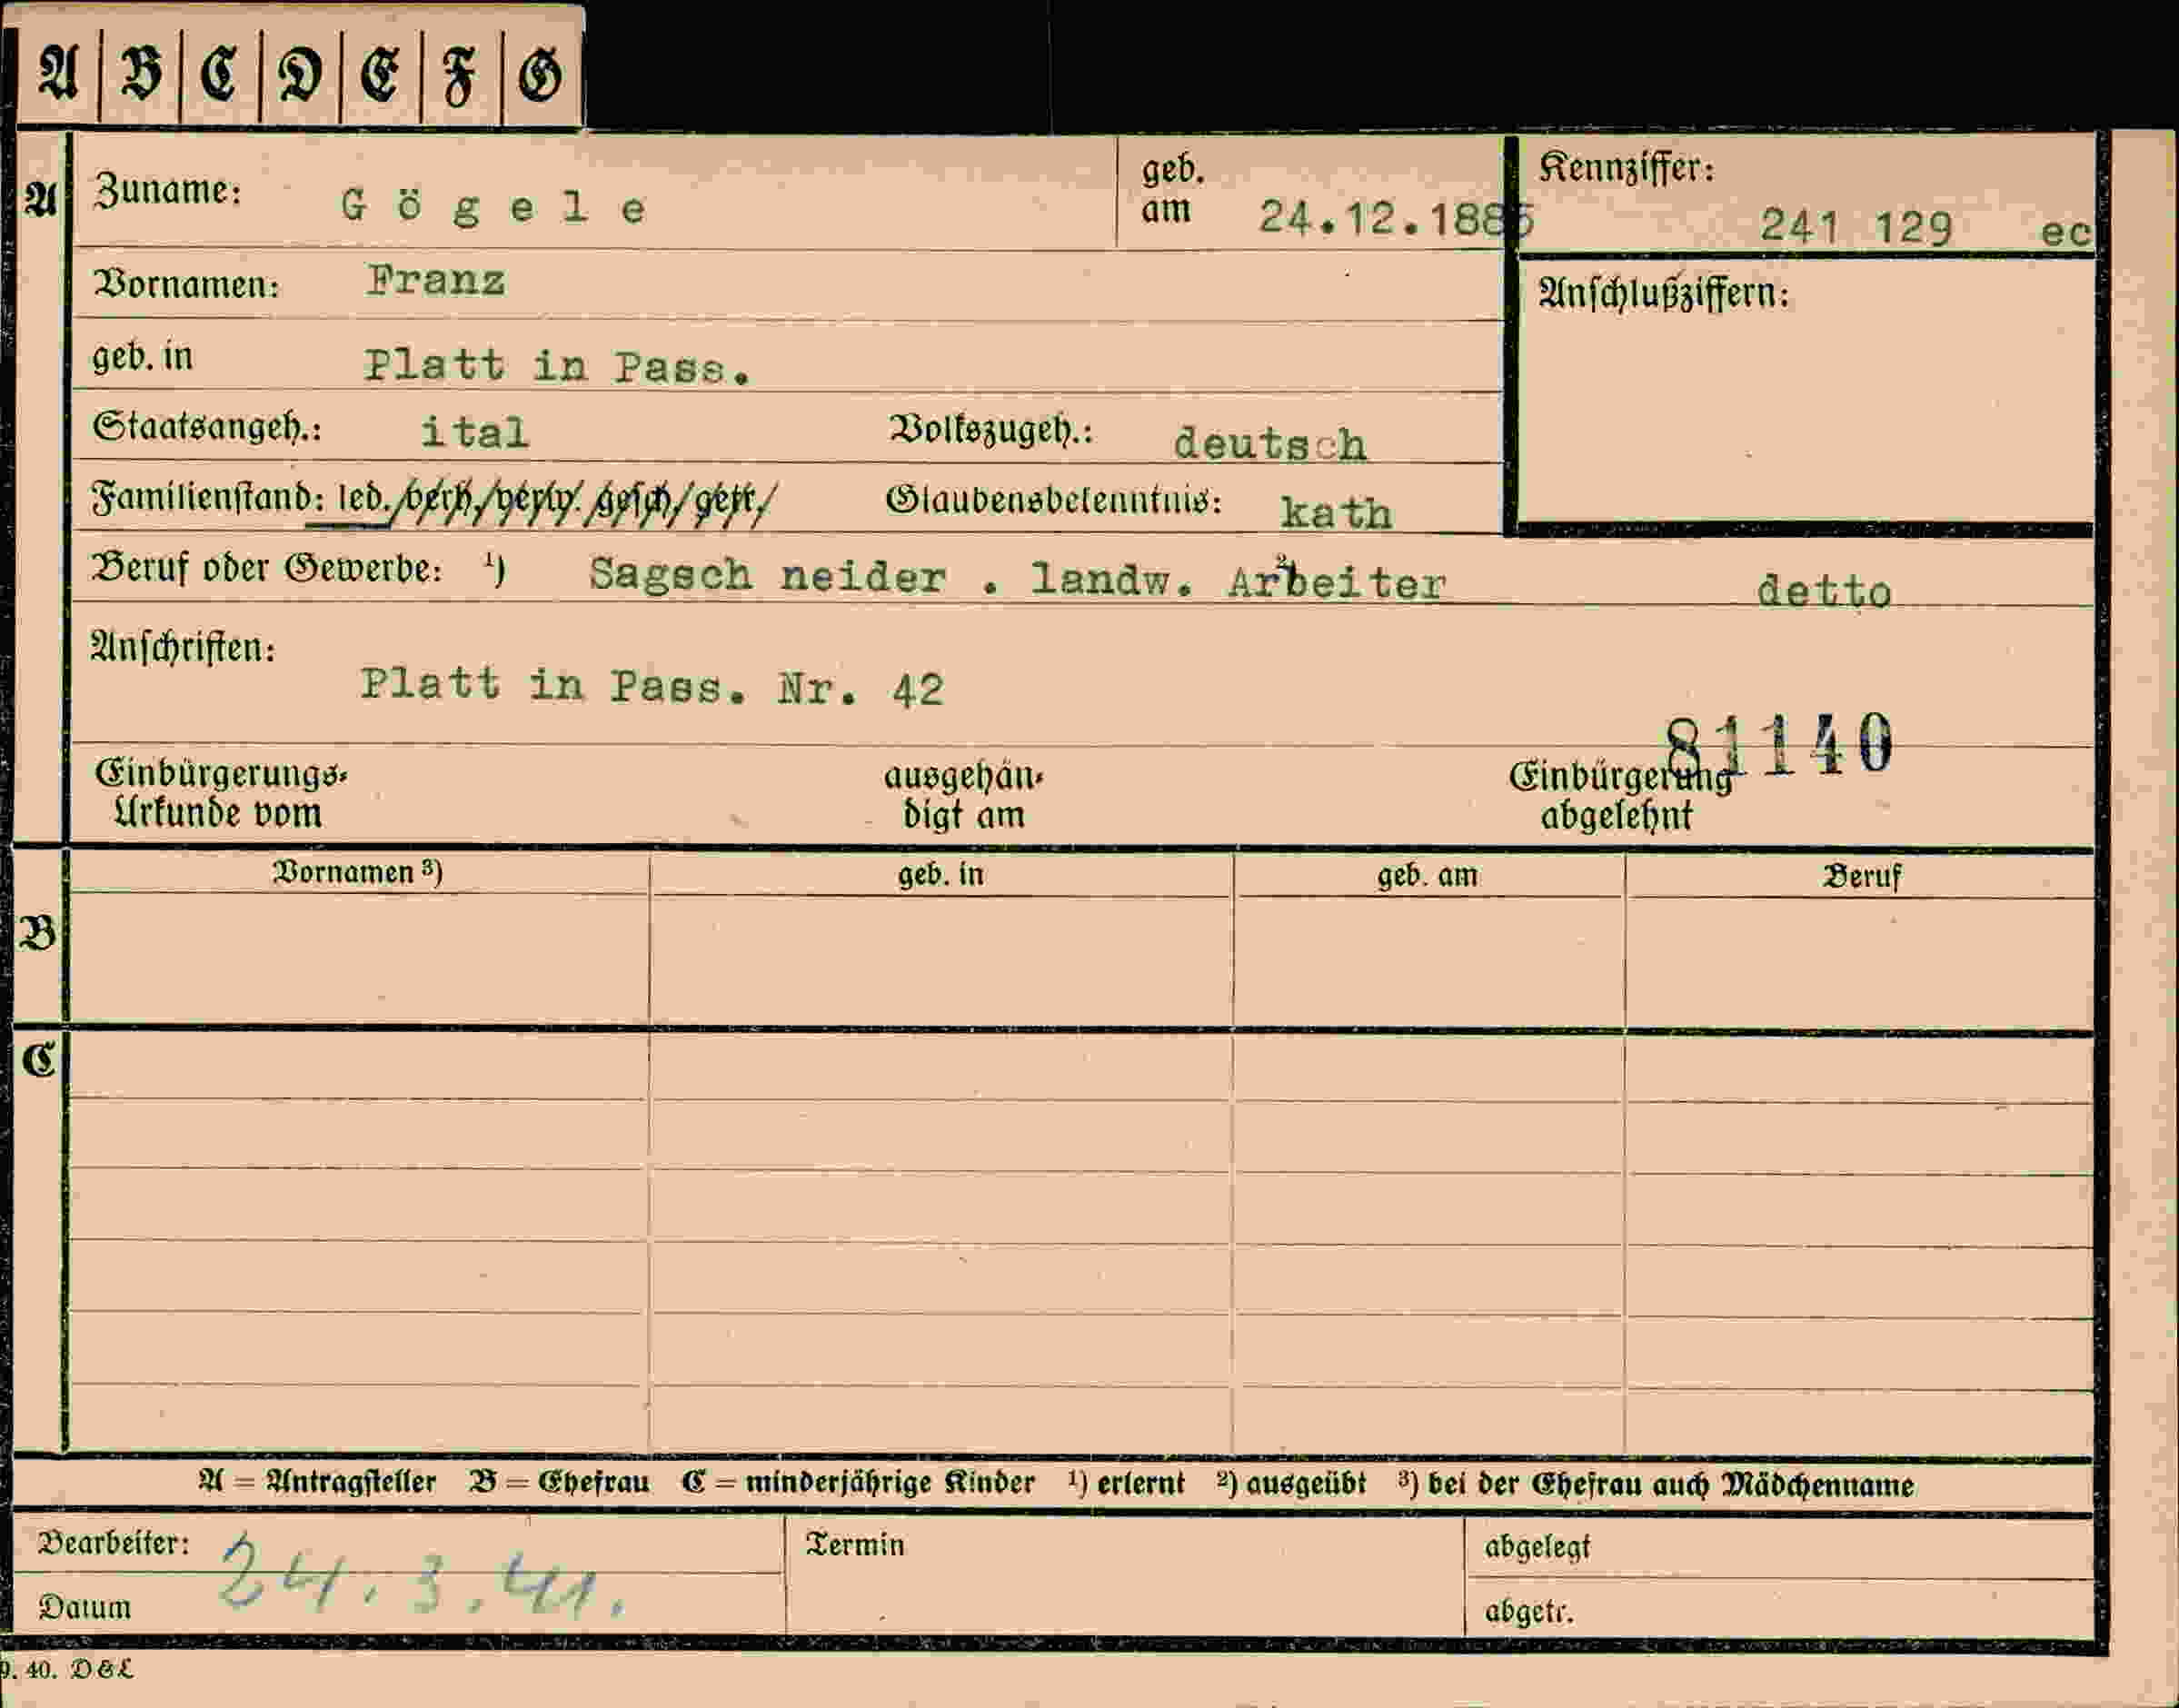 A B C D E F G
A
Zuname: Gögele
geb. am 24.12.1885
Kennziffer: 241 129 ec
Vornamen: Franz
Anschlußziffern:
geb. in Platt in Pass.
Staatsangeh.: ital Volkszugeh.: deutsch
Familienstand: led./verh./verw. gesch/getr/ Glaubensbekenntnis: kath
Beruf oder Gewerbe: ¹) Sagsch neider . landw. Arbeiter ² detto
Anschriften:
Platt in Pass. Nr. 42
81140
Einbürgerungs-Urkunde vom
ausgehän-digt am
Einbürgerung abgelehnt
B
Vornamen ³) geb. in geb. am Beruf
C
A = Antragsteller B = Ehefrau C = minderjährige Kinder ¹) erlernt ²) ausgeübt ³) bei der Ehefrau auch Mädchenname
Bearbeiter: Termin abgelegt
24.3.41.
Datum abgetr.
9. 40. D & L